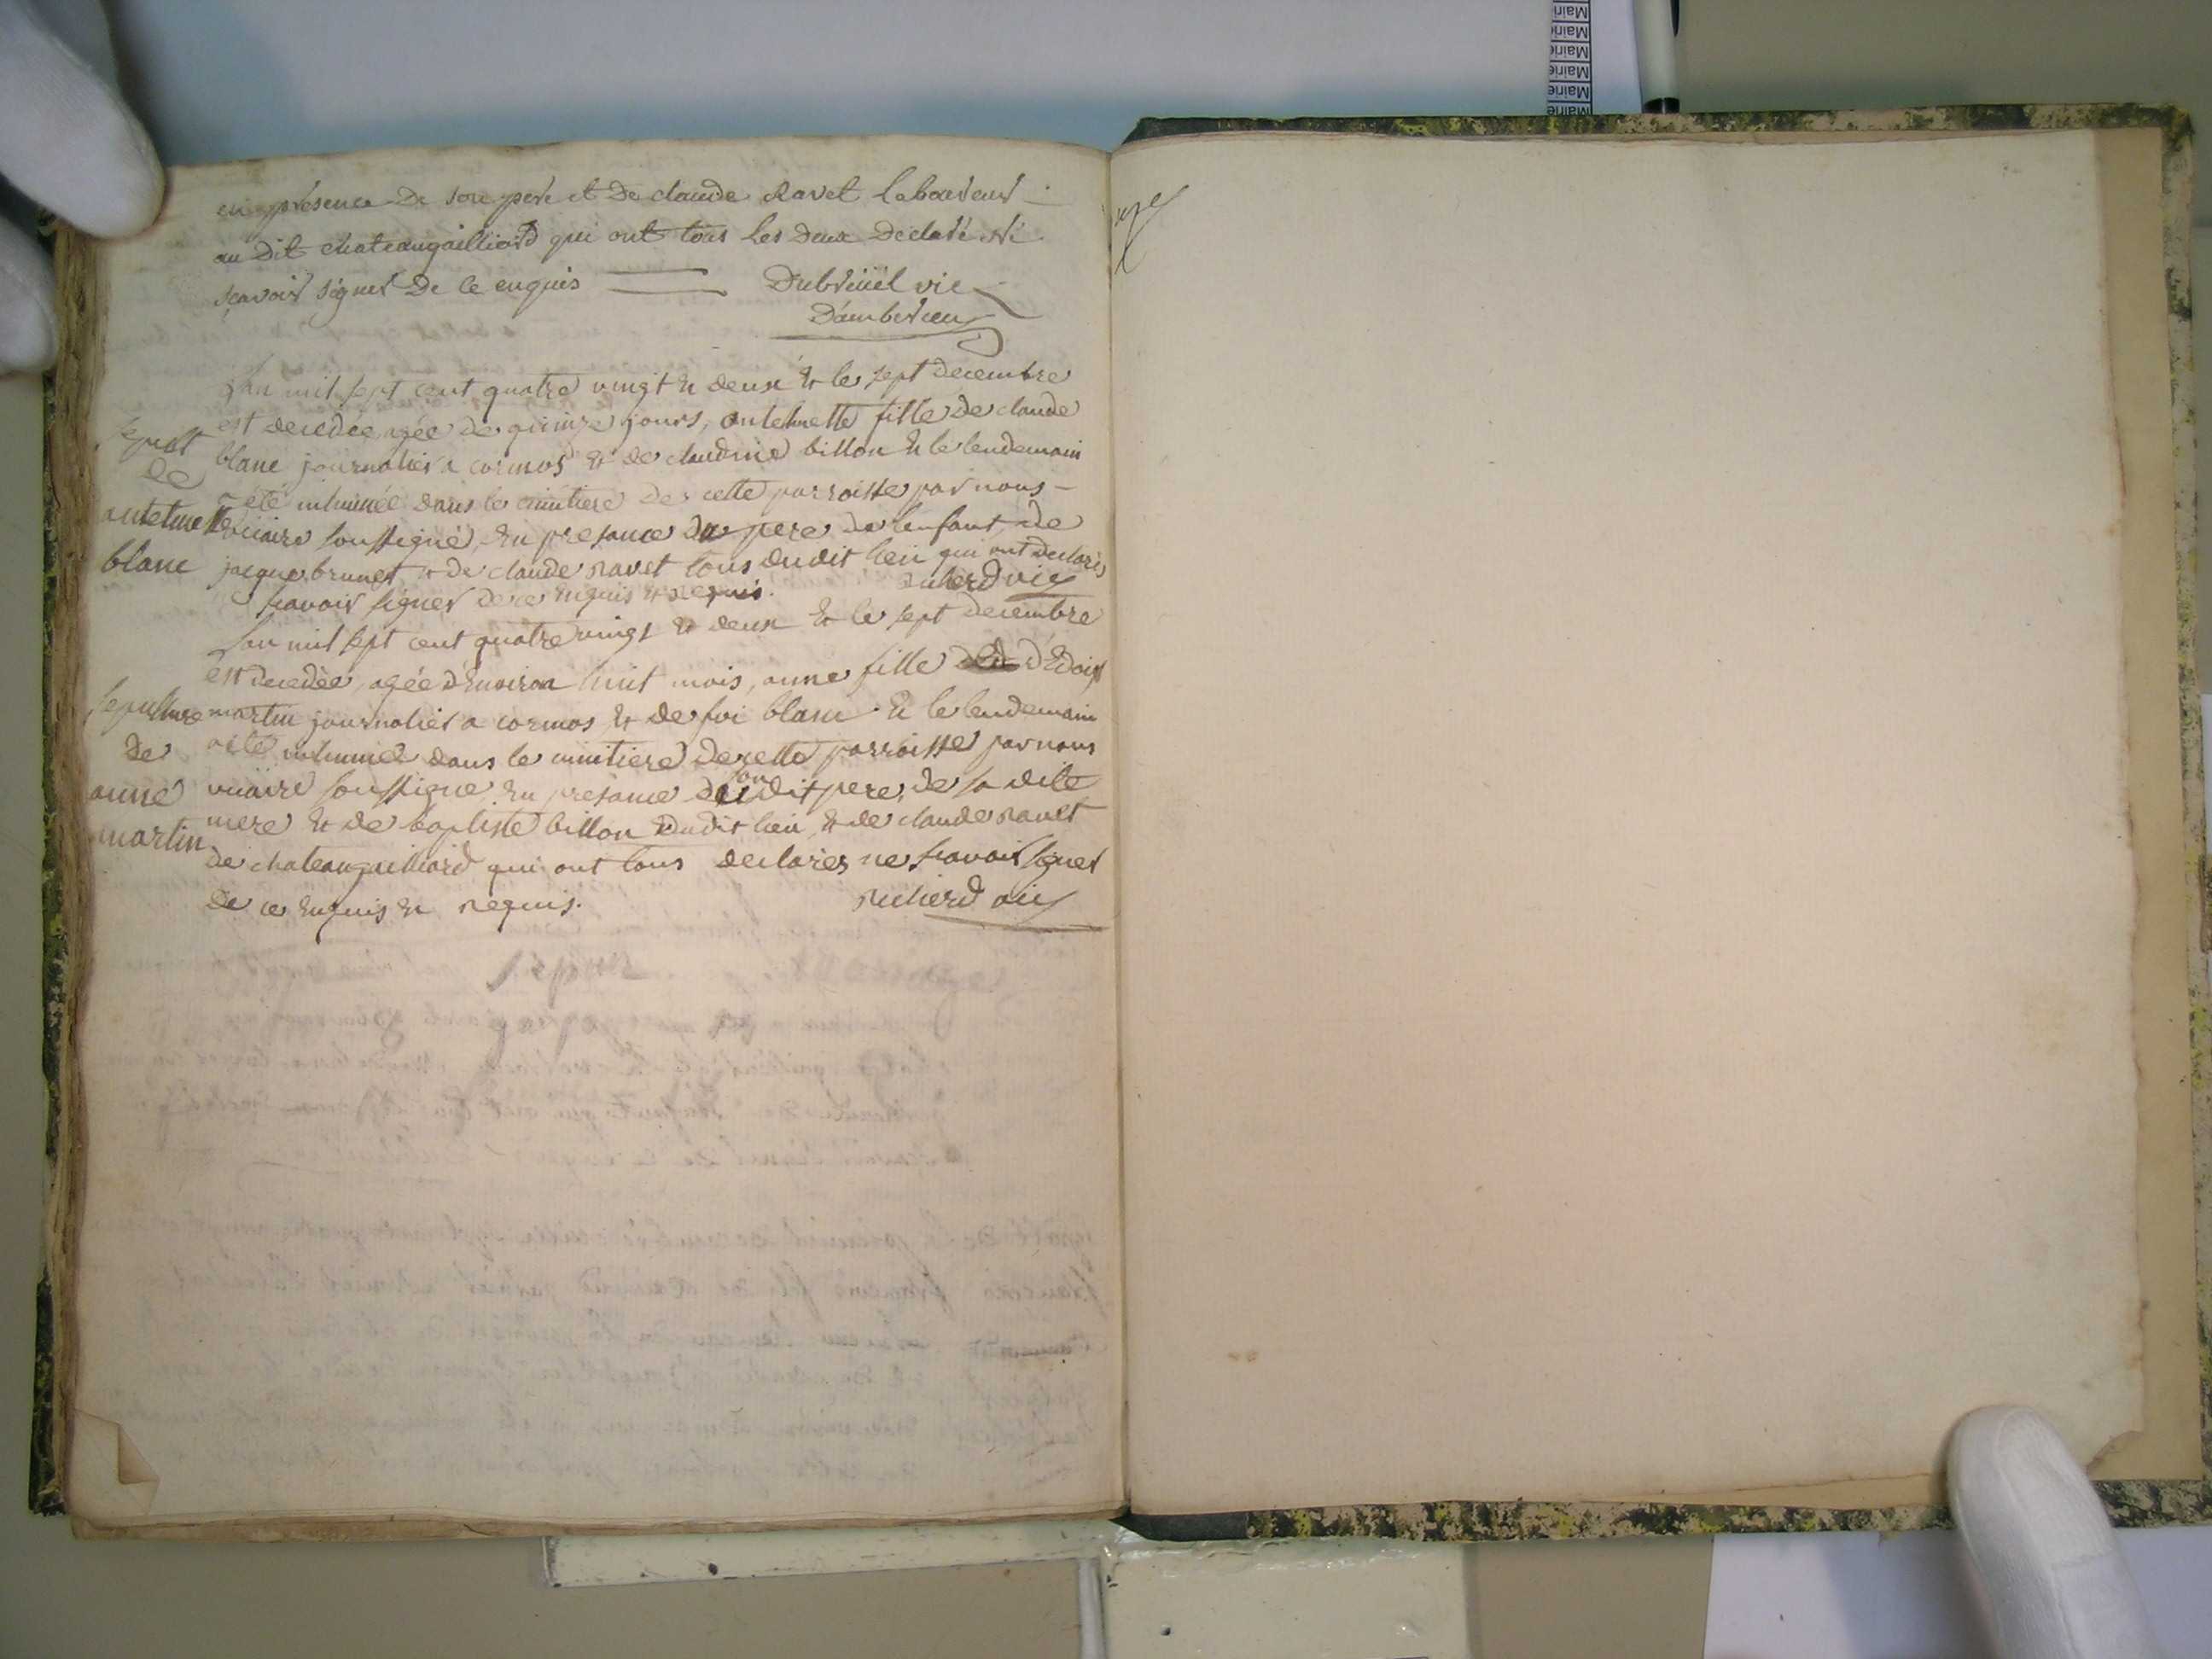 Mairie
Mairie
Mairie
Mairie
Mairie
Mairie
en presence De son pere et De claude Ravet Laboureur
au Dit chateaugailliard qui ont tous les deux Declaré Ne
sçavoir signer De ce enquis Dubreüil vic
D'amberieu
Lan mil sept cent quatre vingt & deux & le sept decembre
est decedée, agée de quinze jours, antelmette fille de claude
blanc journalier a cormos & de claudine billon & le lendemain
a été inhumée dans le cimitiere de cette parroisse par nous
vicaire soussigné, en presance du pere de lenfant, de
jacque brunet & de claude ravet tous dudit lieu qui ont declarés
scavoir signer de ce enquis & requis. vic
sepult
de
antelmette
blanc
Lan mil sept cent quatre vingt & deux & le sept decembre
est decedée, agée d'environ huit mois, anne fille
martin journalier a cormos & de blanc & le lendemain
a été inhumée dans le cimitiere de cette parroisse par nous
vicaire soussigné, en presance dudit pere, de sa dite
mere & de baptiste billon dudit lieu, & de claude ravet
de chateaugailliard qui ont tous declarés ne scavoir signer
de ce enquis & requis. vic
sepulture
de
anne
martin